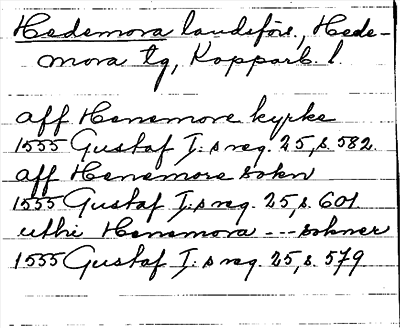 Hedemora landsförs., Hede-
mora tg, Kopparb. l.
aff Henemore kyrke
1555 Gustaf I:s reg. 25, s. 582
aff Henemore sokn
1555 Gustaf I:s reg. 25, s. 601
uthi Henemora --- sokner
1555 Gustaf I:s reg. 25, s. 579